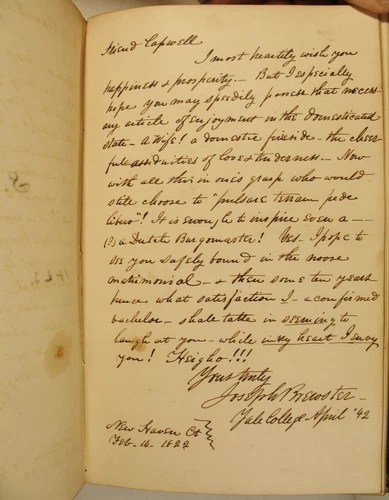 Friend Capwell
I most heartily wish you
happiness & prosperity. — But I especially
hope you may speedily possess that necess-
ary article of enjoyment in the domesticated
state — A Wife! a domestic fireside — the cheer-
ful assiduities of love & tenderness — Now
with all this in one's grasp who would
still choose to "pulsare terram pede
libero"! It is enough to inspire even a —
a Dutch Burgomaster! Yes — I hope to
see you safely bound in the noose
matrimonial — & then some ten years
hence what satisfaction I — a confirmed
bachelor — shall take in seeming to
laugh at you — while in my heart I envy
you! Heigho!!!
Yours truly
Joseph Brewster —
Yale College April '42
New Haven Ct
Feb. 1822